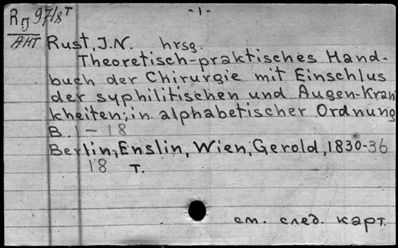 - 1 -
R 97/18 T
АНТ
Rust, J.N. hrsg.
Theoretisch-praktisches Hand-
buch der Chirurgie mit Einschlus
der syphilitischen und Augen-Kran
kheiten; in alphabetischer Ordnung
B. 1 - 18
Berlin, Enslin, Wien, Gerold, 1830-36
18 т.
см. след. карт.